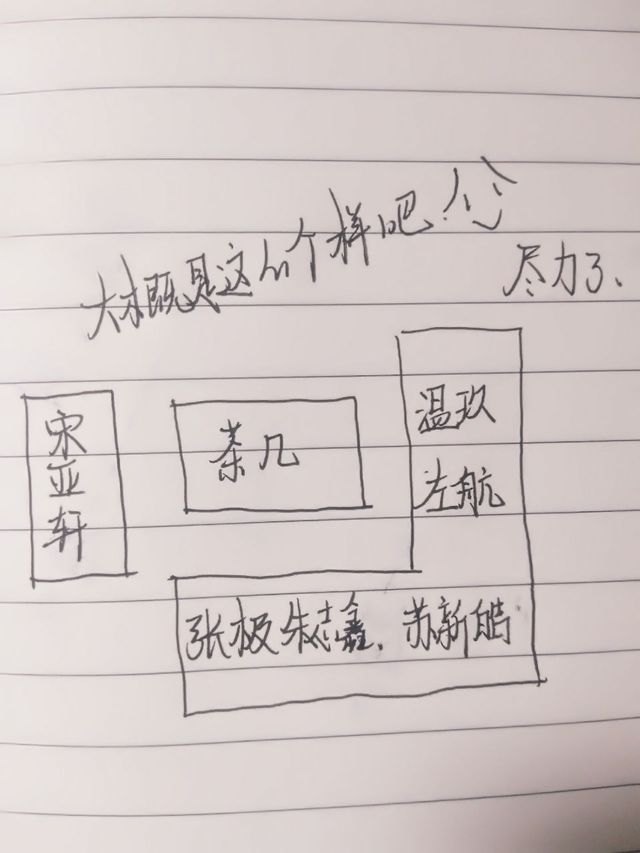 大概是这个样吧！
尽力了、
宋亚轩
茶几
温玖
左航
张极朱志鑫、苏新皓